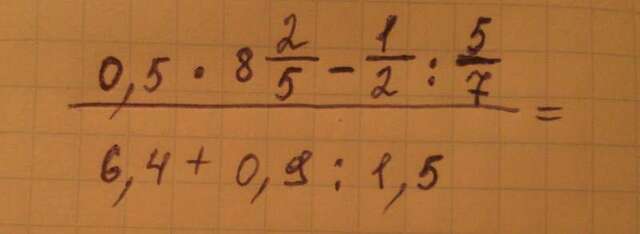 0,5 · 8 2/5 − 1/2 : 5/7 =
6,4 + 0,9 : 1,5